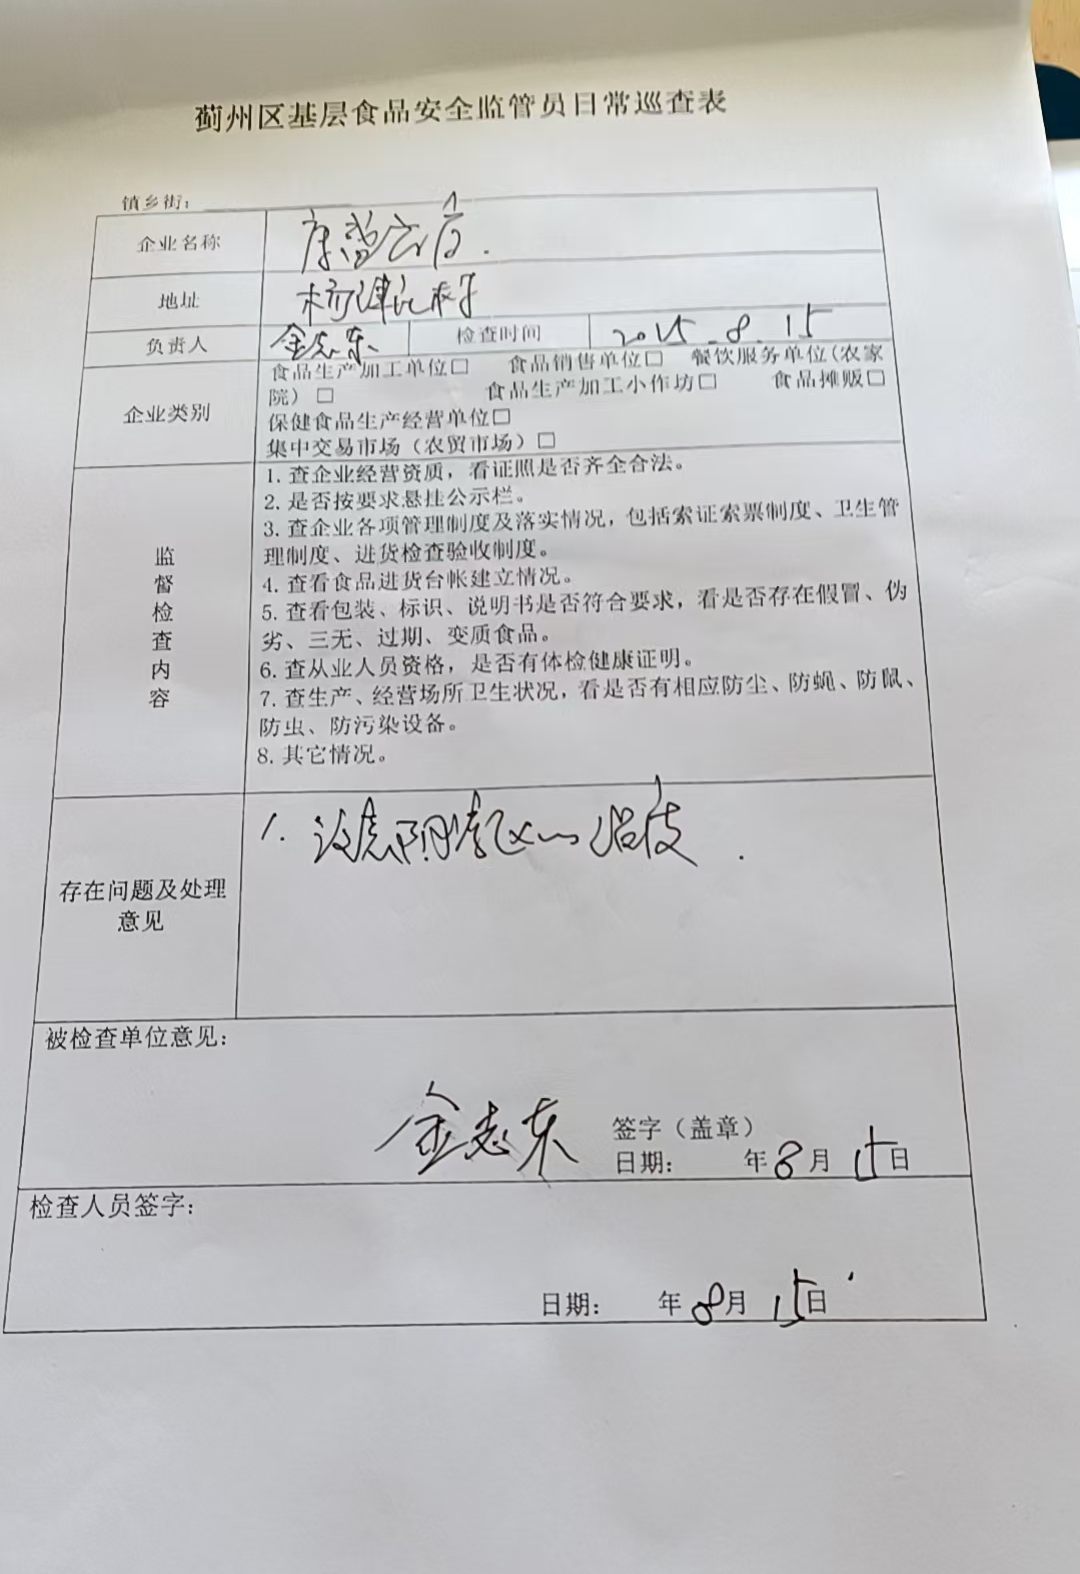 蓟州区基层食品安全监管员日常巡查表
镇乡街：
企业名称
地址
负责人 金志东 检查时间 2025.8.15
企业类别
食品生产加工单位□ 食品销售单位□ 餐饮服务单位(农家
院）□ 食品生产加工小作坊□ 食品摊贩□
保健食品生产经营单位□
集中交易市场（农贸市场）□
监督检查内容
1. 查企业经营资质，看证照是否齐全合法。
2. 是否按要求悬挂公示栏。
3. 查企业各项管理制度及落实情况，包括索证索票制度、卫生管
理制度、进货检查验收制度。
4. 查看食品进货台帐建立情况。
5. 查看包装、标识、说明书是否符合要求，看是否存在假冒、伪
劣、三无、过期、变质食品。
6. 查从业人员资格，是否有体检健康证明。
7. 查生产、经营场所卫生状况，看是否有相应防尘、防蝇、防鼠、
防虫、防污染设备。
8. 其它情况。
存在问题及处理
意见
1.
被检查单位意见：
金志东 签字（盖章）
日期： 年8月15日
检查人员签字：
日期： 年8月15日